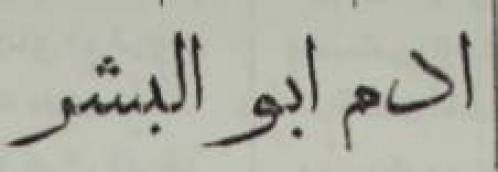 ادم ابو البشر